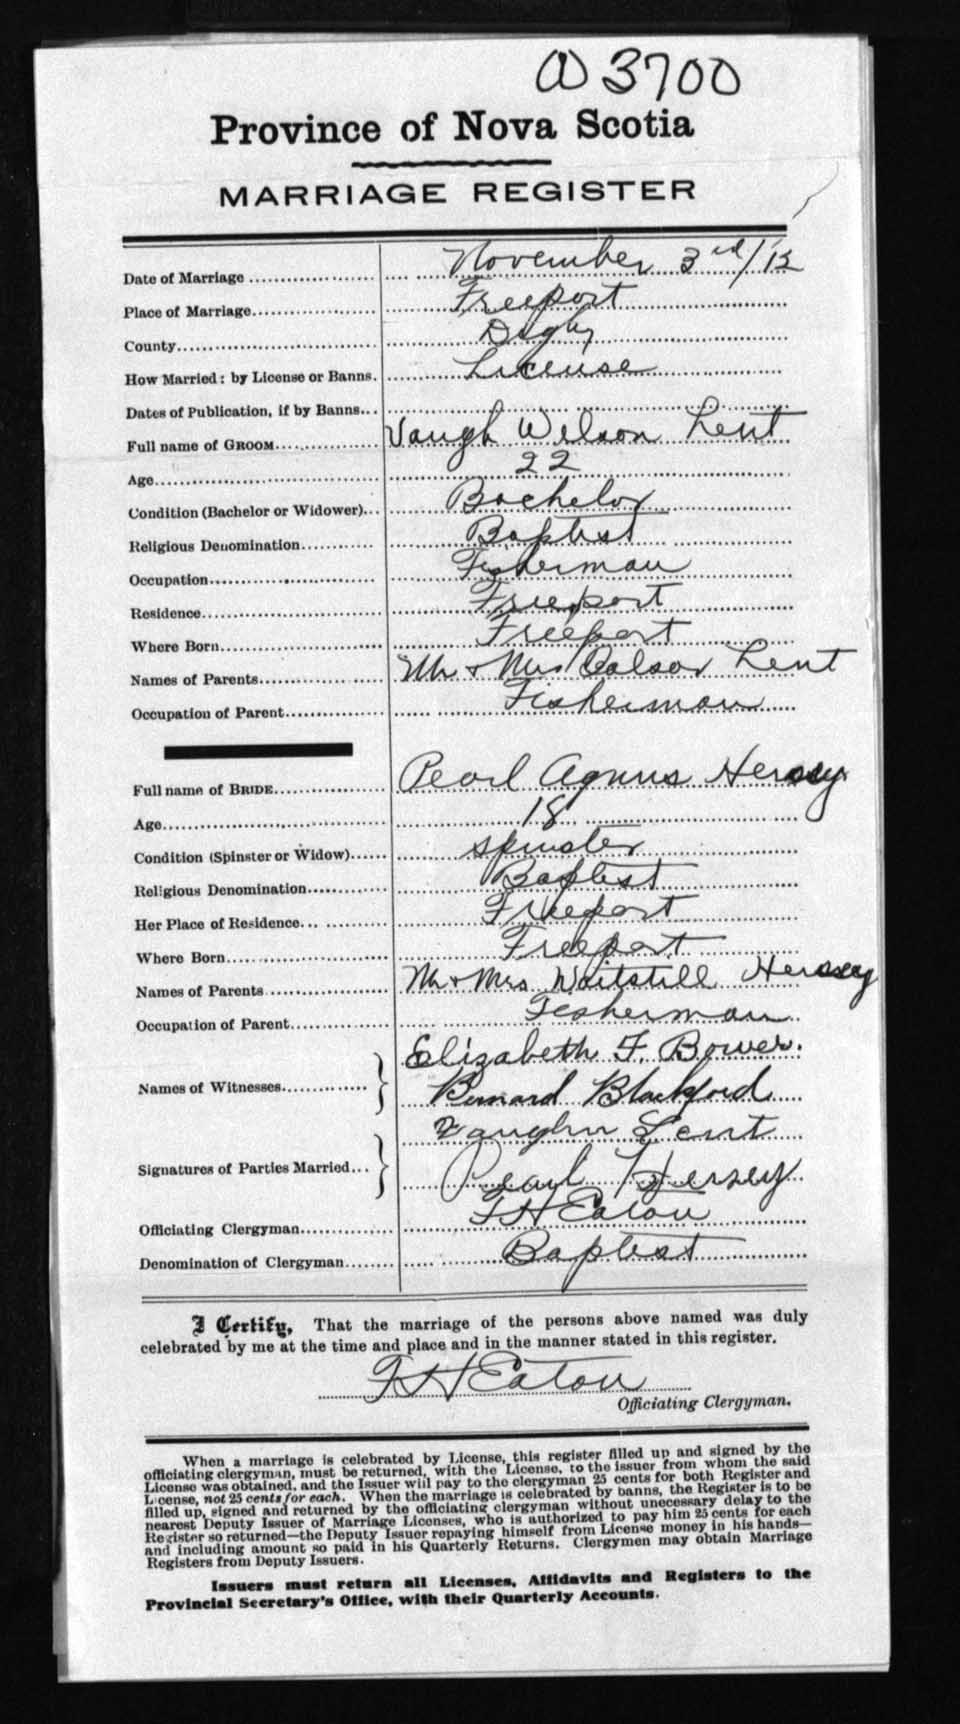 A 3700
Province of Nova Scotia
MARRIAGE REGISTER
Date of Marriage November 3rd/13
Place of Marriage Freeport
County Digby
How Married: by License or Banns. License
Dates of Publication, if by Banns
Full name of GROOM Vaugh Wilson Lent
Age 22
Condition (Bachelor or Widower) Bachelor
Religious Denomination Baptist
Occupation Fisherman
Residence Freeport
Where Born Freeport
Names of Parents Mr & Mrs Lent
Occupation of Parent Fisherman
Full name of BRIDE Pearl Agnus Hersey
Age 18
Condition (Spinster or Widow) Spinster
Religious Denomination Baptist
Her Place of Residence Freeport
Where Born Freeport
Names of Parents Mr & Mrs Waitstill Hersey
Occupation of Parent Fisherman
Names of Witnesses Elizabeth F. Bower.
Bernard Blackford
Signatures of Parties Married Vaughn Lent
Pearl Hersey
Officiating Clergyman FH Eaton
Denomination of Clergyman Baptist
I Certify, That the marriage of the persons above named was duly
celebrated by me at the time and place and in the manner stated in this register.
FH Eaton
Officiating Clergyman.
When a marriage is celebrated by License, this register filled up and signed by the
officiating clergyman, must be returned, with the License, to the issuer from whom the said
License was obtained, and the Issuer will pay to the clergyman 25 cents for both Register and
License, not 25 cents for each. When the marriage is celebrated by banns, the Register is to be
filled up, signed and returned by the officiating clergyman without unnecessary delay to the
nearest Deputy Issuer of Marriage Licenses, who is authorized to pay him 25 cents for each
Register so returned—the Deputy Issuer repaying himself from License money in his hands—
and including amount so paid in his Quarterly Returns. Clergymen may obtain Marriage
Registers from Deputy Issuers.
Issuers must return all Licenses, Affidavits and Registers to the
Provincial Secretary's Office, with their Quarterly Accounts.